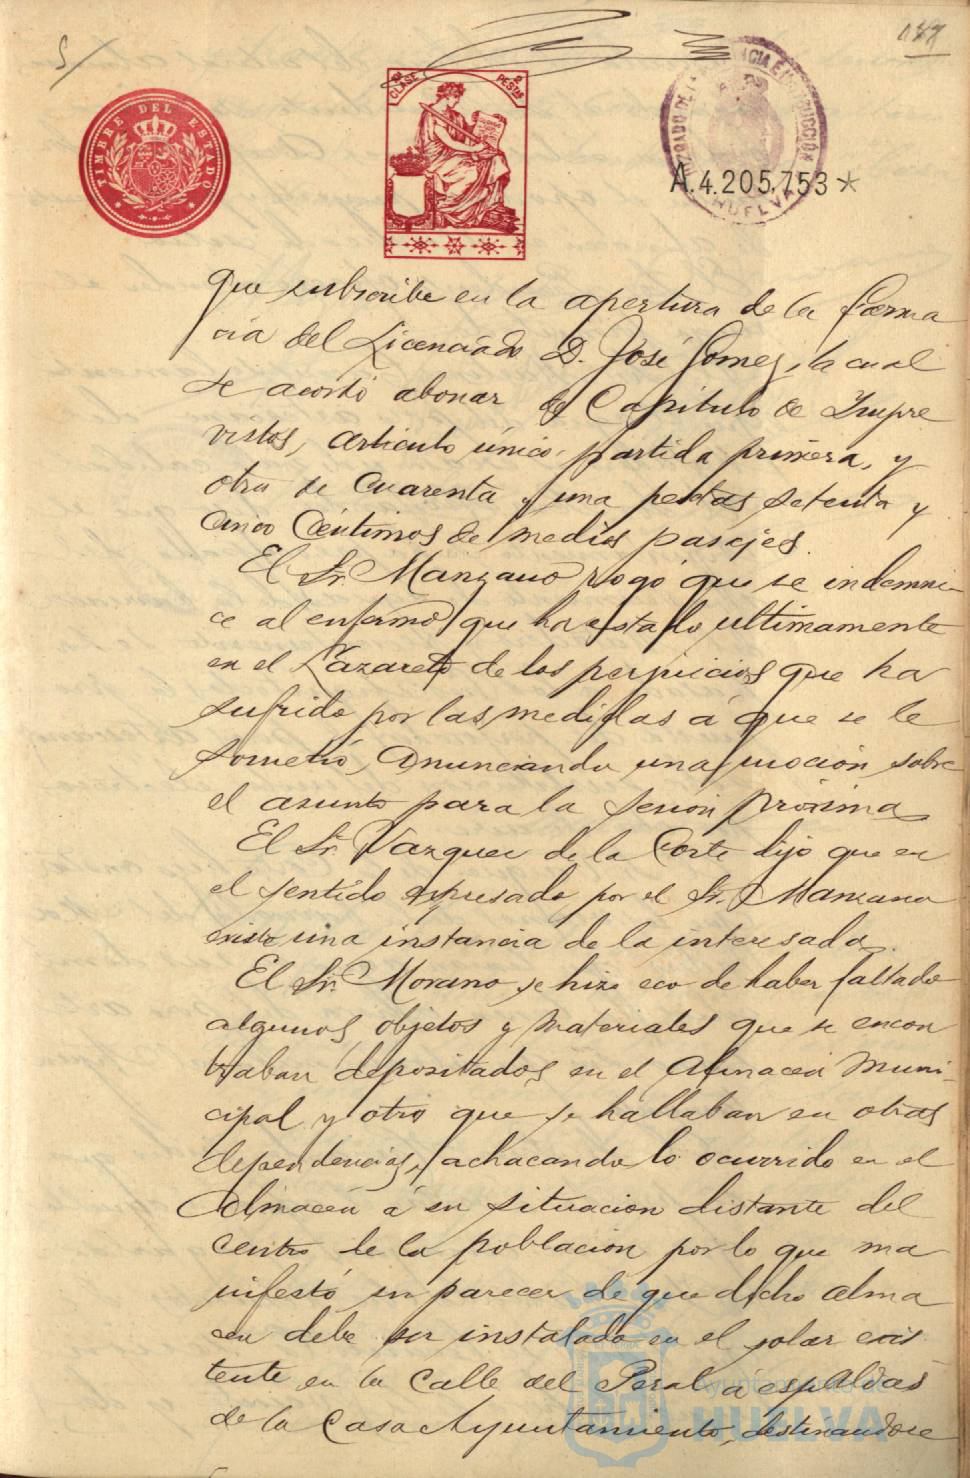 TIMBRE DEL ESTADO
CLASE 2 PESTAS
JUZGADO DE 1ª INSTANCIA E INSTRUCCIÓN
HUELVA
A.4.205,753*
que subscribe en la apertura de la farma
cia del Licenciado D. José Gomez, la cual
se acordó abonar de Capítulo de Impre
vistos, articulo único, partida primera, y
otra de cuarenta y una pestas setenta y
cinco Céntimos de medios pasajes.
El Sr. Manzano rogó que se indemni-
ce al enfermo que ha estado ultimamente
en el Lazareto de los perjuicios que ha
sufrido por las medidas á que se le
sometió, anunciando una moción sobre
el asunto para la sesión próxima
El Sr. Vazquez de la Corte dijo que en
el sentido expresado por el Sr. Manzano
existe una instancia de la interesada.
El Sr. Morano se hizo eco de haber faltado
algunos objetos y materiales que se encon
traban depositados en el Almacén Muni-
cipal y otro que se hallaban en otras
dependencias, achacando lo ocurrido en el
Almacén á su situacion distante del
centro de la poblacion por lo que ma
nifestó su parecer de que dicho alma
cen debe ser instalado en el solar exis
tente en la Calle del Peral á espaldas
de la Casa Ayuntamiento, destinandose
Ayuntamiento de
HUELVA